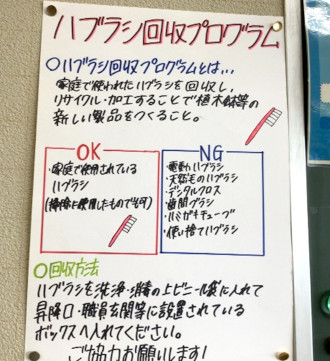 ハブラシ回収プログラム
〇ハブラシ回収プログラムとは…
家庭で使われたハブラシを回収し、
リサイクル・加工することで植木鉢等の
新しい製品をつくること。
OK
・家庭で使用されている
ハブラシ
(掃除に使用したものでも可)
NG
・電動ハブラシ
・天然毛のハブラシ
・デンタルフロス
・歯間ブラシ
・ハミガキチューブ
・使い捨てハブラシ
〇回収方法
ハブラシを洗浄・消毒の上ビニール袋に入れて
昇降口・職員玄関等に設置されている
ボックスへ入れてください。
ご協力お願いします!